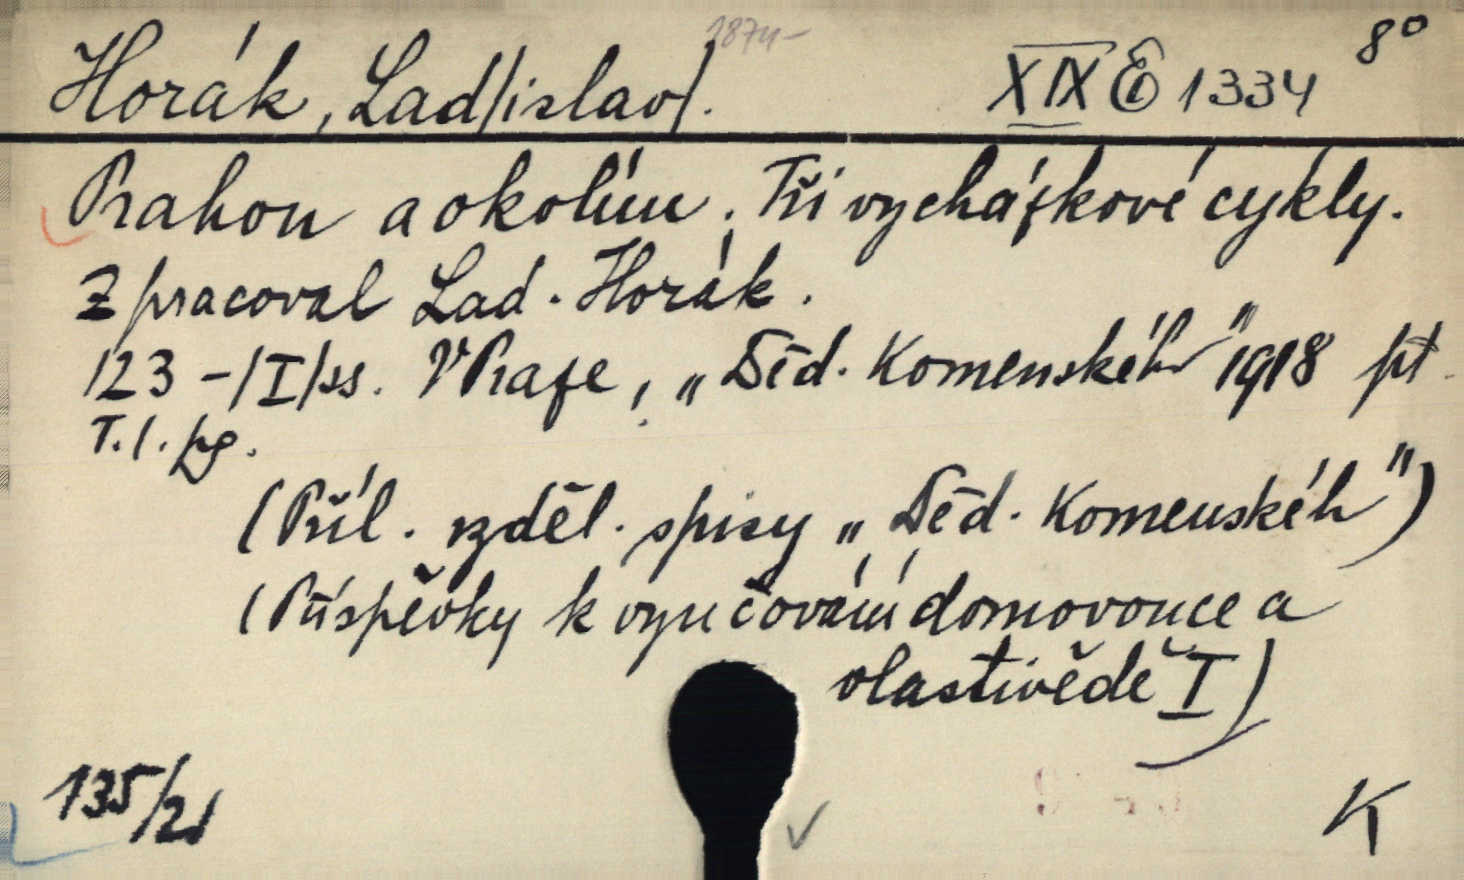 1874-
Horák, Lad/islav/. XIX E 1334 8°
Prahou a okolím. Tři vycházkové cykly.
Zpracoval Lad. Horák.
123 -/I/ss. V Praze, „Děd. Komenského" 1918 pt.
T. l. pg.
(Příl. vzděl. spisy „Děd. Komenského")
(Příspěvky k vyučování domovouce a
vlastivědě I)
135/21
K